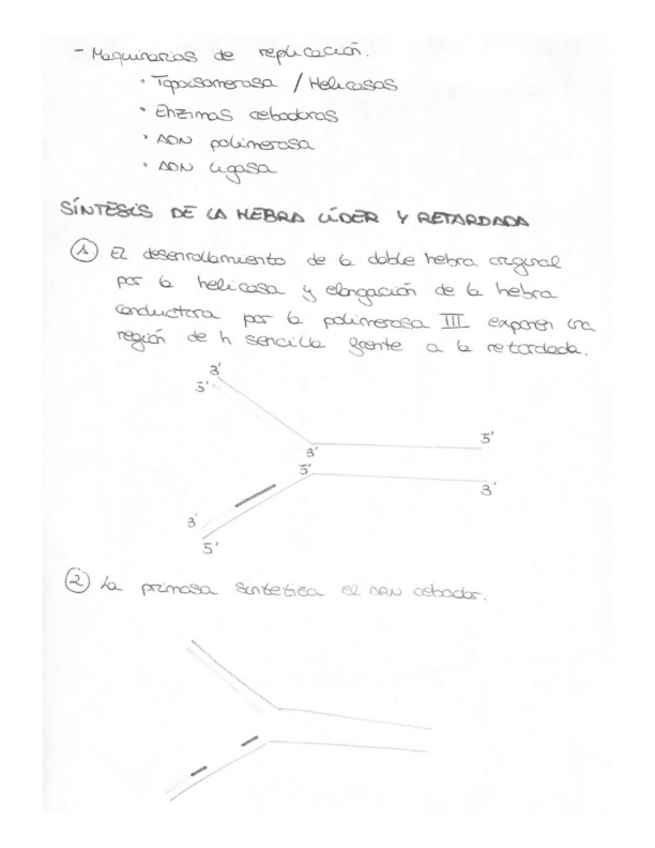 - Maquinarias de replicación.
· Topoisomerasa / Helicasas
· Enzimas cebadoras
· ADN polimerasa
· ADN ligasa
SÍNTESIS DE LA HEBRA LÍDER Y RETARDADA
1 El desenrollamiento de la doble hebra original
por la helicasa y elongación de la hebra
conductora por la polimerasa III exponen una
región de h sencilla frente a la retardada.
3'
5'
5'
3'
5'
3'
3'
5'
2 La primasa sintetiza el ARN cebador.